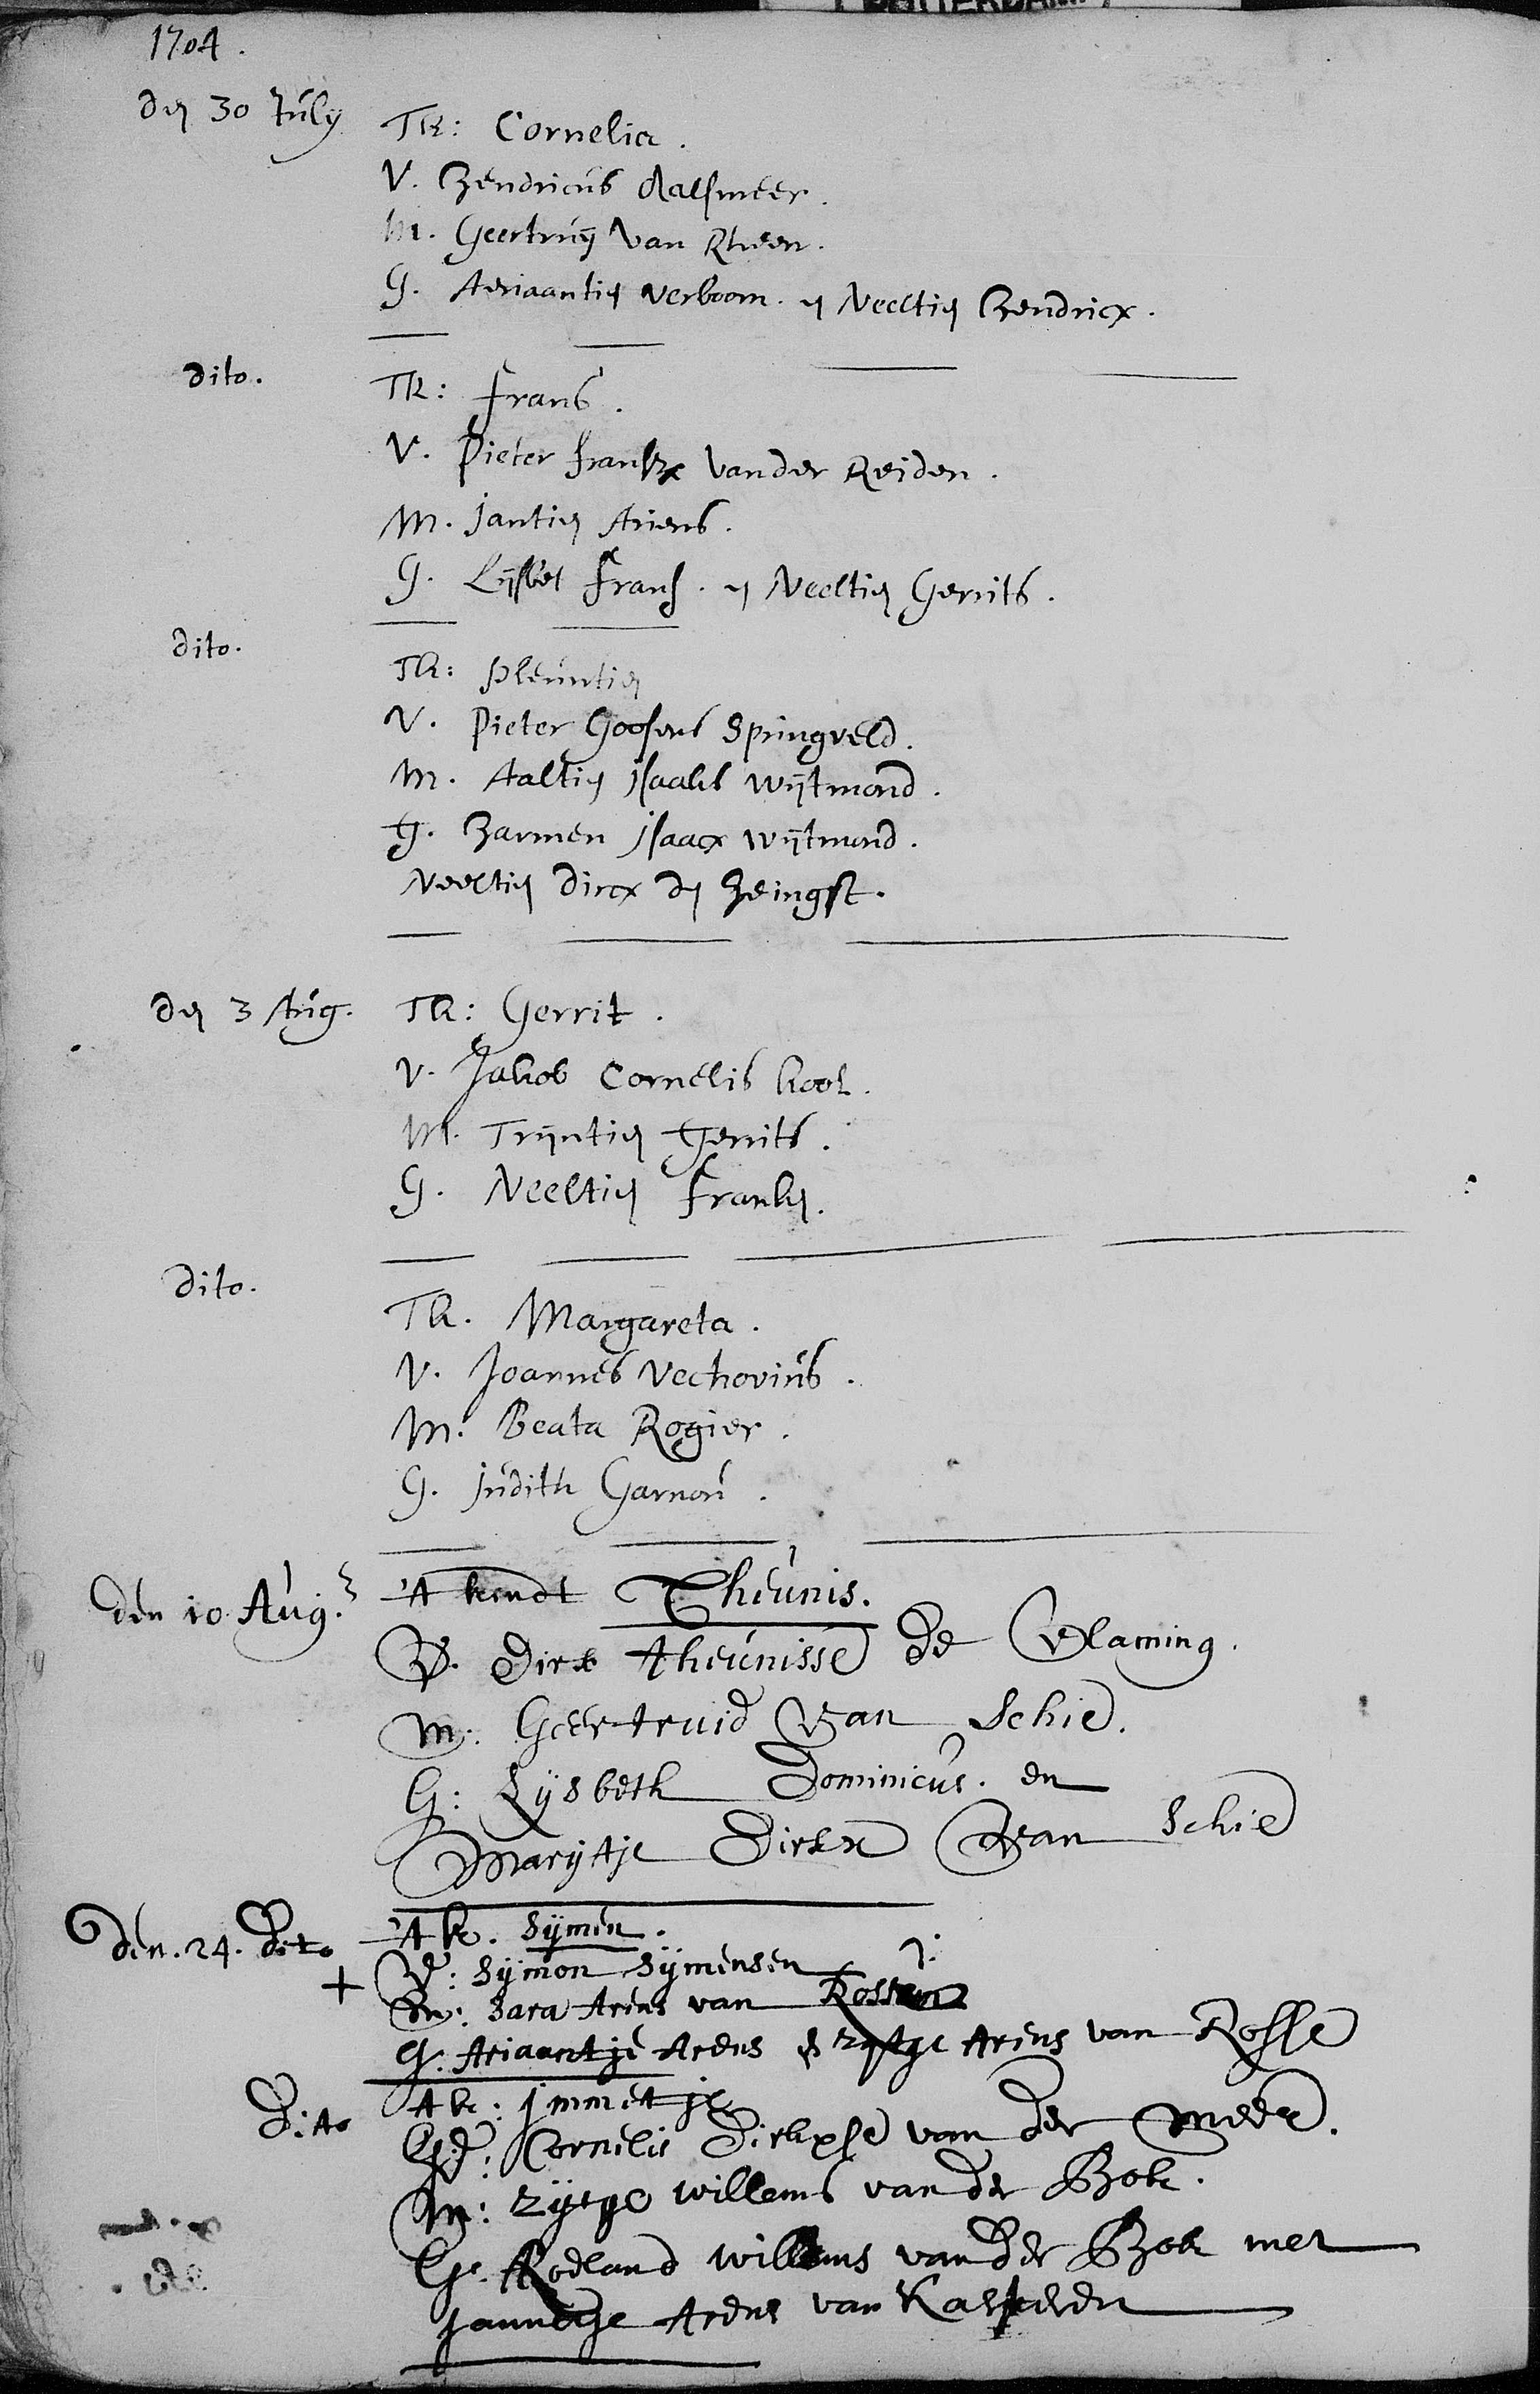 ROTTERDAM
1704.
den 30 July
TK: Cornelia.
V. Hendricus Aalsmeer.
M. Geertruÿ van Rheen.
G. Ariaantien Verboom. en Neeltien Hendricx.
dito.
TK: Frans.
V. Pieter Fransz vander Reiden.
M. Jantien Ariens.
G. Lijsbet Frans. en Neeltien Gerrits.
dito.
TK: Pleuntien
V. Pieter Goosens Springveld.
M. Aaltien Isaaks Wijtmond.
G. Harmen Isaacx Wijtmond.
Neeltien Dircx de Heingst.
den 3 Aug.
TK: Gerrit.
V. Jakob Cornelis Kool.
M. Trijntien Gerrits.
G. Neeltien Franken.
dito.
TK. Margareta.
V. Joannes Vechovius.
M. Beata Rogier.
G. Judith Garnou.
den 10 Aug.
't kindt Theunis.
V. Dirk theunisse de Vlaming.
M. Geertruid van Schie.
G: Lijsbeth Dominicus. en
Marijtje Dirkx van Schie
den. 24. Dito
't k. Sijmen.
+ V: Sijmon Sijmensen
M: Sara Arens van Rossen
G. Ariaantje Arens & Arens van Rosse
Dito
t k: Jmmetje
V: Cornelis Dirkxse van der Meer.
M: Zijtge Willems van der Bok.
G. Roeland Willems van der Bok met
Jannetje Arens van